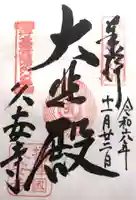 奉拝
令和六年
十一月廿二日
大悲殿
久安寺